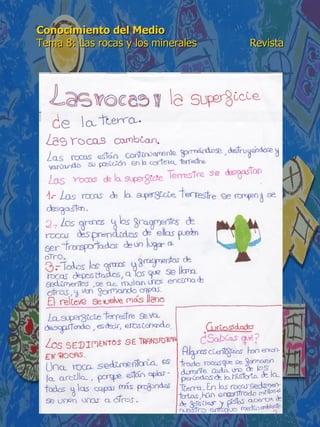 Conocimiento del Medio
Tema 8: Las rocas y los minerales Revista
Las rocas y la superficie
de la tierra.
Las rocas cambian.
Las rocas están continuamente formándose, destruyéndose y
variando su posición en la corteza terrestre
Las rocas de la superficie Terrestre se desgastan
1.- Las rocas de la superficie terrestre se rompen y se
desgastan.
2.- Los granos y los fragmentos de
rocas desprendidos de ellas pueden
ser transportados de un lugar a
otro.
3.- Todos los granos y fragmentos de
rocas depositados, a los que se llama
sedimentos, se acumulan unos encima de
otros, y van formando capas.
El relieve se vuelve más llano
La superficie terrestre se va
desgastando, es decir, erosionando.
Los SEDIMENTOS SE TRANSFORMAN
EN ROCAS.
Una roca sedimentaria, es
la arcilla, porque están aplas-
tadas y las capas más profundas
se unen unas a otras.
Curiosidades
¿Sabías qué?
Algunos científicos han encon-
trado rocas que se formaron
durante cada uno de los
periodos de la historia de la
Tierra. En las rocas sedimen-
tarias han encontrado millones
de fósiles y pistas acerca de
nuestro antiguo medio ambiente